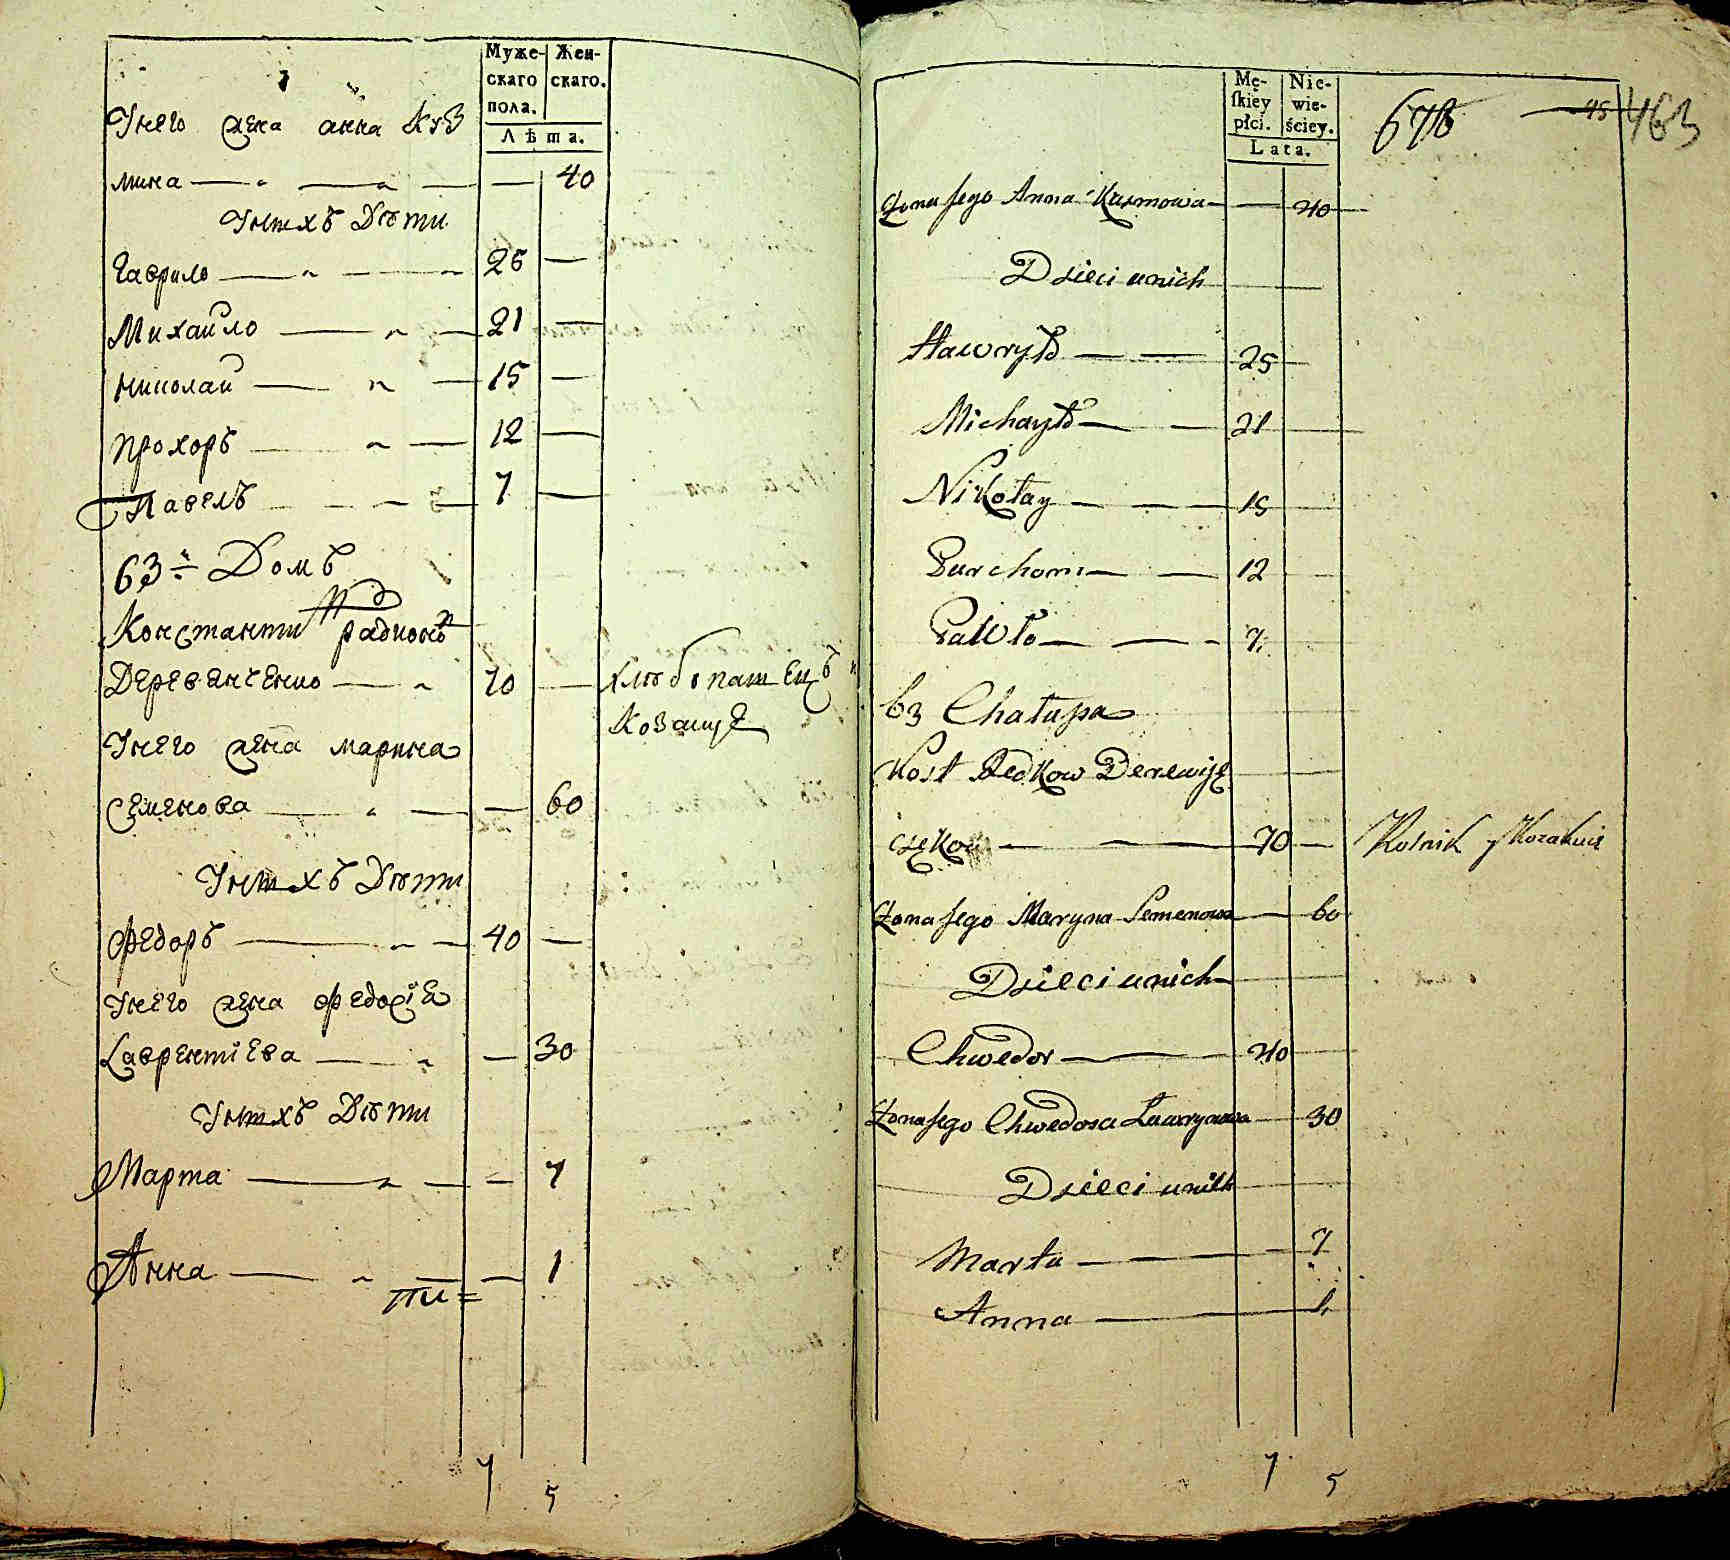 Муже- Жен-
скаго скаго.
пола.
Лѣта.
Унего жена анна Куз
мина — — — — 40
Унихъ Дѣти
Гаврило — — — 25 —
Михайло — — — 21 —
Николай — — — 15 —
Прохоръ — — 12 —
Павелъ — — — 7 —
63 Домъ
Константи Радионъ
Деревянченко — — 70 — хлѣбопашецъ и
Козацце
Унего жена марина
Семенова — — — — 60
Унихъ Дѣти
Федоръ — — — 40 —
Унего жена Федосiя
Лаврентiева — — — 30
Унихъ Дѣти
Марта — — — — 7
Анна — — — — 1
7 5
Mę- Nie-
ſkiey wie-
płci. ściey.
Lata.
678 — 45 463
Żona Jego Anna Kuzmowa — — 40
Dzieci unich
Hawryło — — 25
Michayło — — 21
Nikołay — — — 15
Purchom — — 12
Pawło — — — 7
63 Chałupa
Kost Redkow Derewię
czękow — — — 70 — Rolnik y Kozakuie
Żona Jego Maryna Semenowa — — 60
Dzieci unich
Chwedor — — 40
Żona Jego Chwedosa Ławrynowa — 30
Dzieci unich
Marta — — — — 7
Anna — — 1
7 5